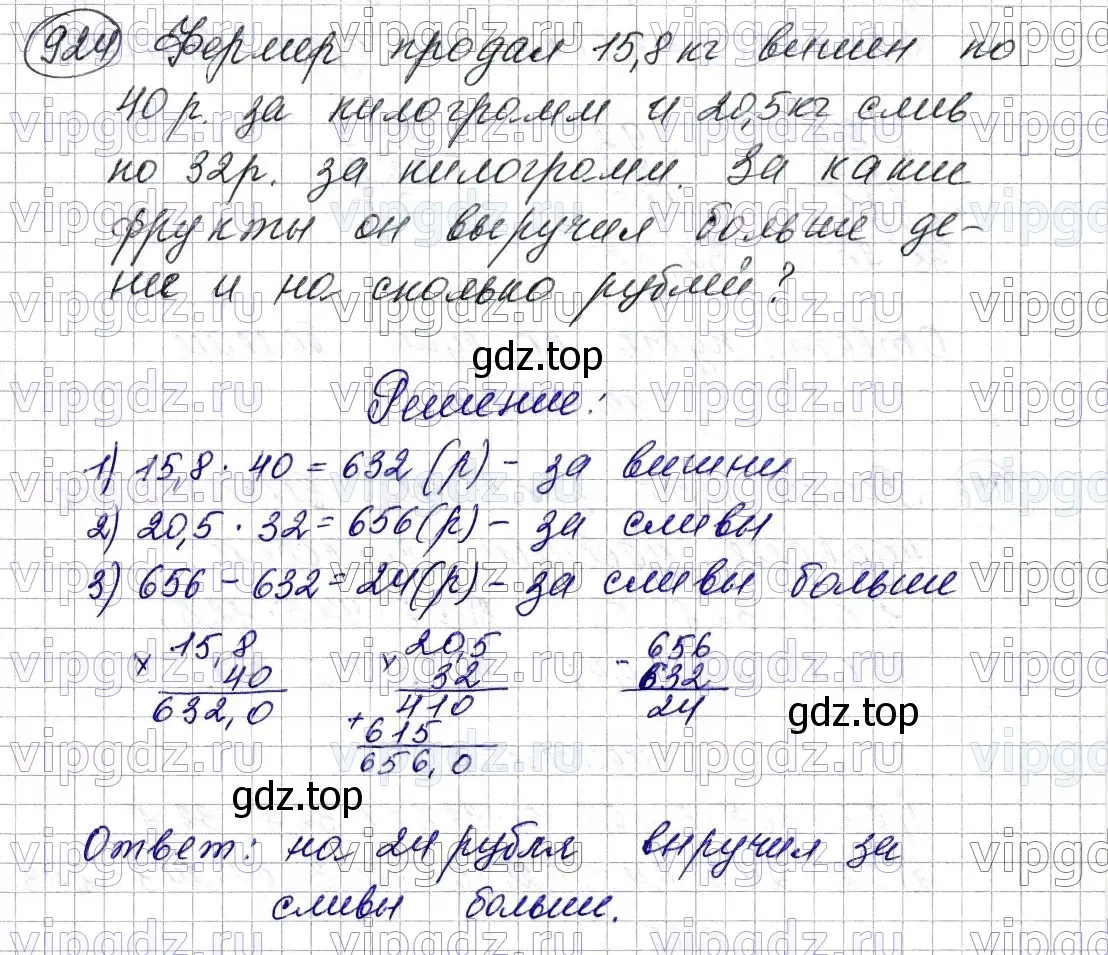 924 Фермер продал 15,8 кг вишен по
40 р. за килограмм и 20,5 кг слив
по 32 р. за килограмм. За какие
фрукты он выручил больше де-
нег и на сколько рублей?
gdz.top
Решение:
1) 15,8 · 40 = 632 (р) - за вишни
2) 20,5 · 32 = 656 (р) - за сливы
3) 656 - 632 = 24 (р) - за сливы больше
× 15,8 × 20,5 - 656
40 32 632
632,0 410 24
+ 615
656,0
gdz.top
gdz.top
Ответ: на 24 рубля выручил за
сливы больше.
vipgdz.ru